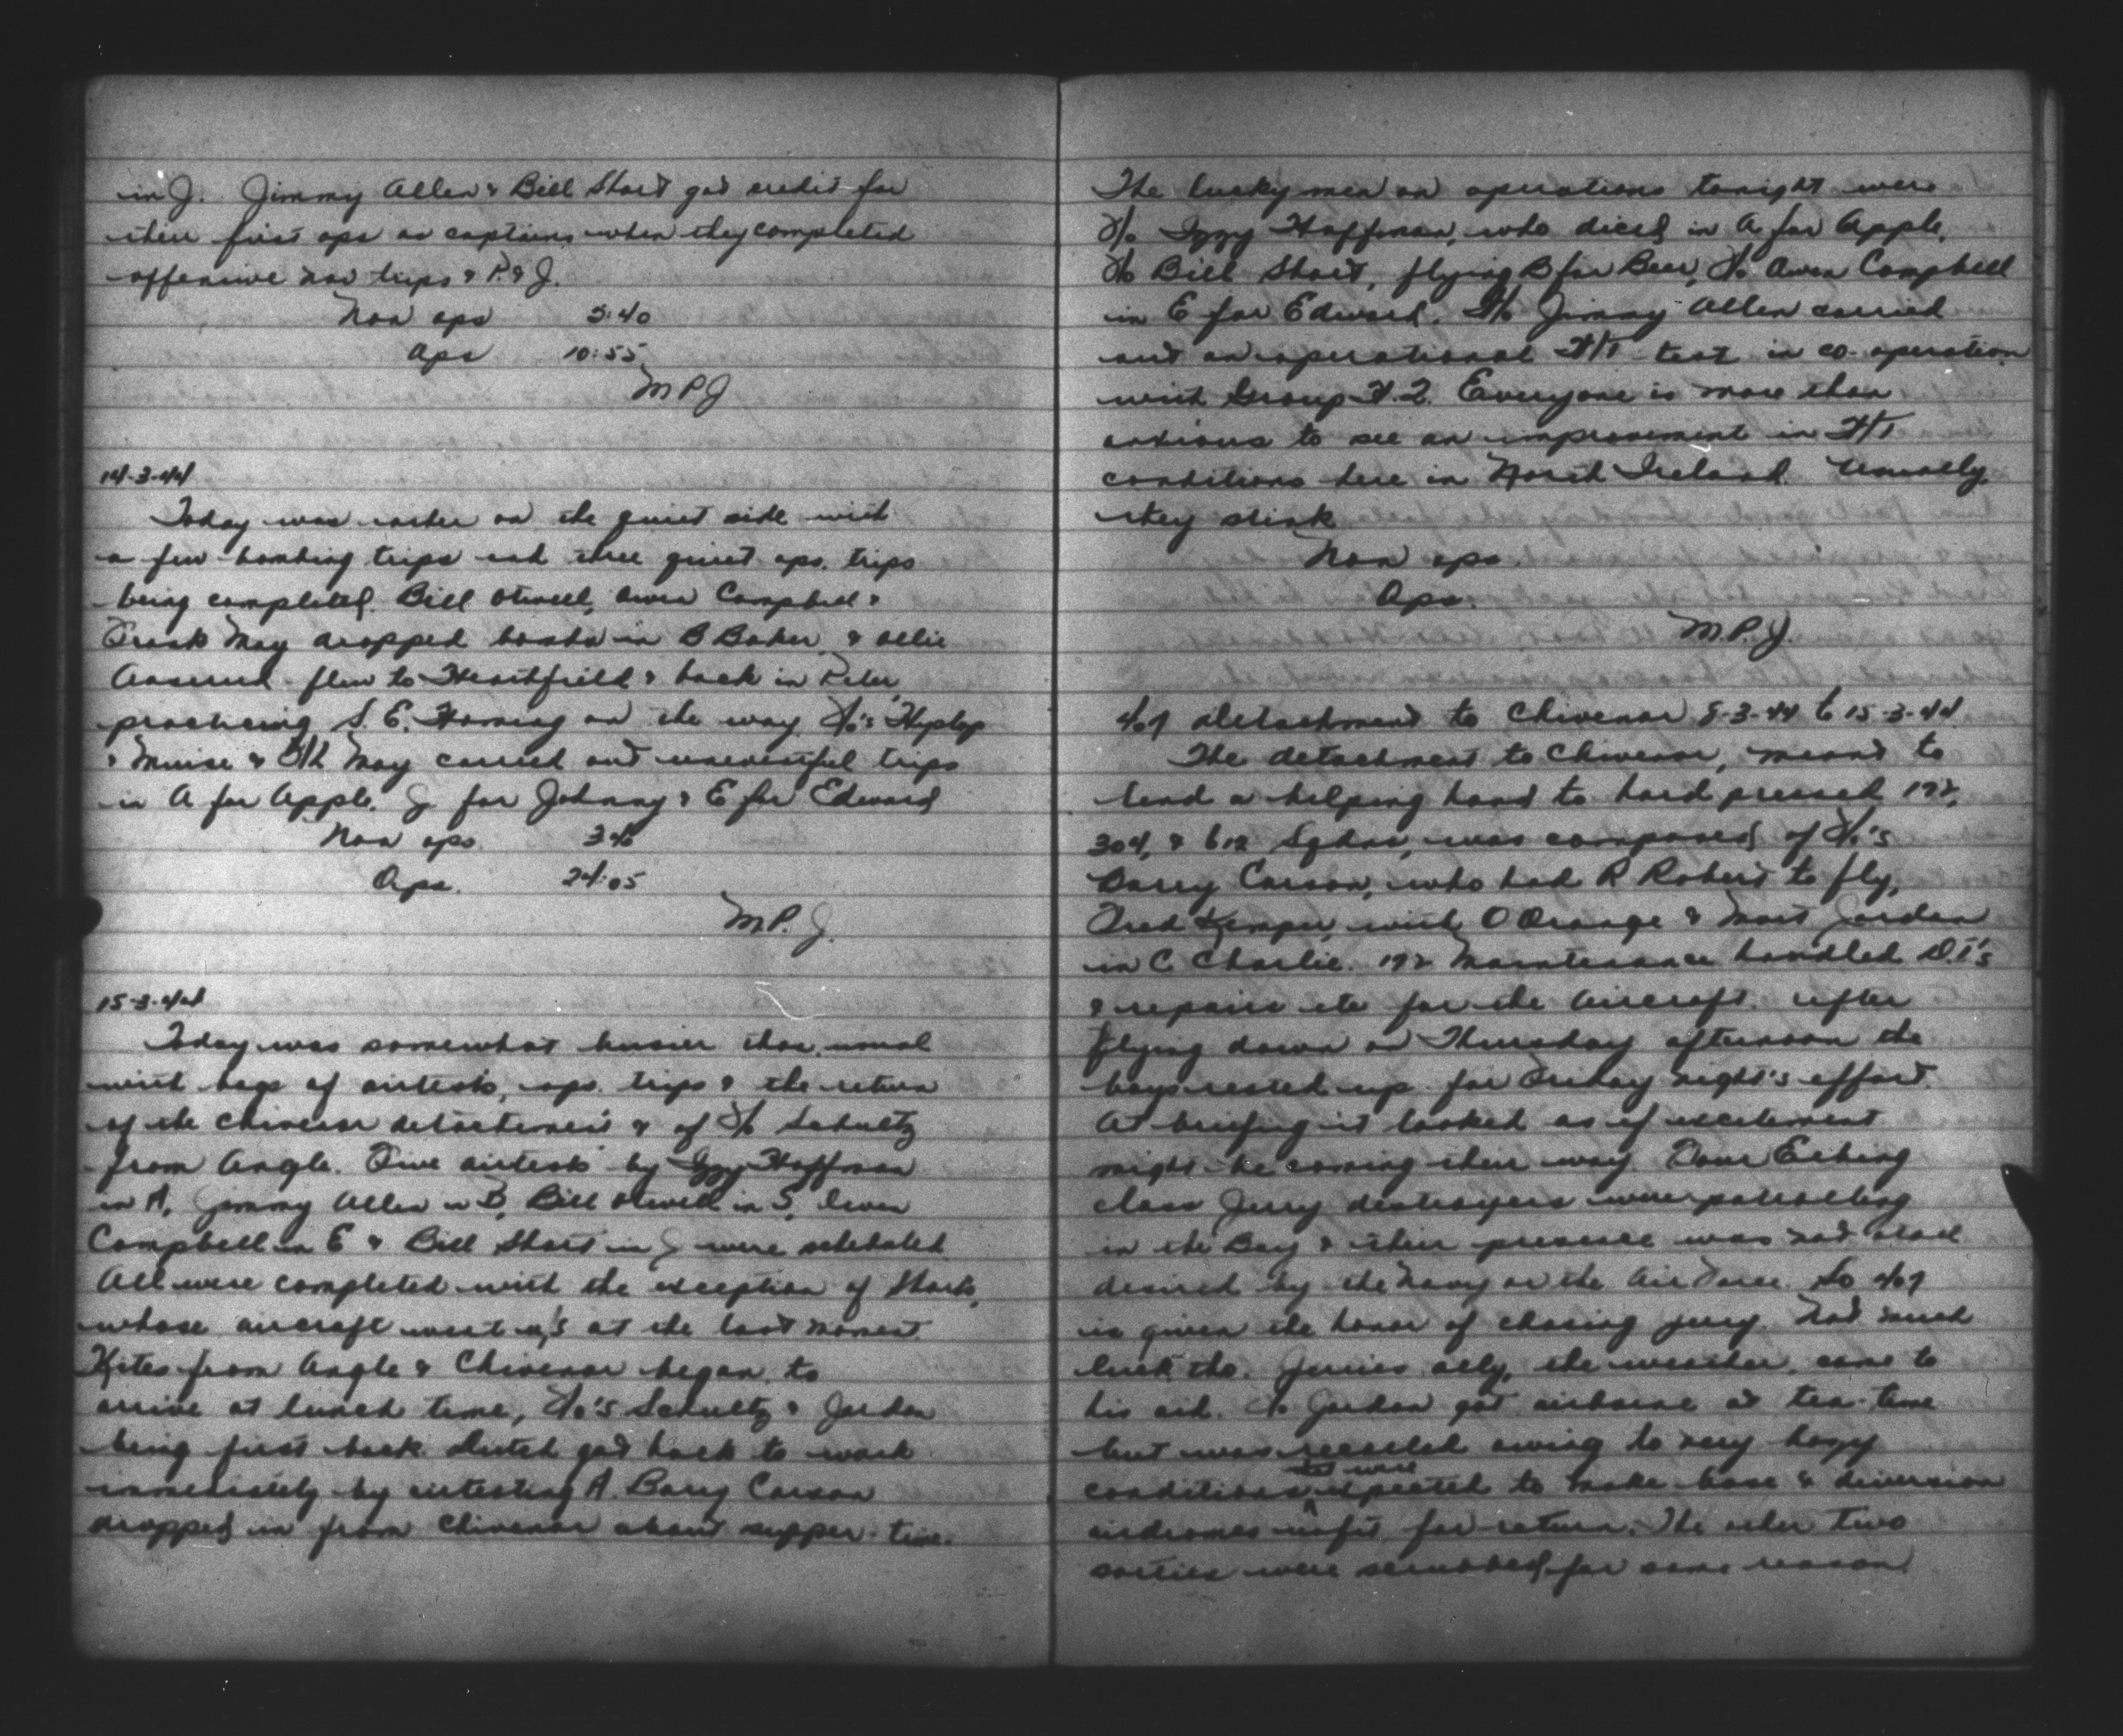 in J. Jimmy Allen & Bill Short got credit for
their first ops as captains when they completed
offensive nav trips & P. & J.
Non ops 5:40
Ops 10:55
M P J
14-3-44
Today was rather on the quiet side with
a few bombing trips and three quiet ops. trips
being completed. Bill Otwell, Owen Campbell &
Frank May dropped bombs in B Baker & Ollie
flew to Heathfield & back in Peter,
practicing S. E. Homing on the way. F/o's Hyslop
& Munise & May carried out uneventful trips
in A for Apple, J for Johnny & E for Edward
Non ops 3 40
Ops. 24:05
M P. J.
15-3-44
Today was somewhat busier than usual
with bags of airtests, ops. trips & the return
of the Chivenor detachment & of F/o Schultz
from Angle. Five airtests by Izzy Hoffman
in A, Jimmy Allen in B, Bill Otwell in S, Owen
Campbell in E & Bill Short in J were scheduled.
All were completed with the exception of Shorts,
whose aircraft went u/s at the last moment
Kites from Angle & Chivenor began to
arrive at lunch time, F/o's Schultz & Jordan
being first back. Dutch got back to work
immediately by airtesting A. Barry Carson
dropped in from Chivenor about supper-time.
The lucky men on operations tonight were
F/o Izzy Hoffman, who diced in A for Apple,
F/o Bill Short, flying B for Beer, F/o Owen Campbell
in E for Edward. F/o Jimmy Allen carried
out an operational H/F test in co-operation
with Group H.Q. Everyone is more than
anxious to see an improvement in
conditions here in North Ireland. Usually,
they stink
Non ops.
Ops.
M. P. J.
407 detachment to Chivenor 8-3-44 to 15-3-44
The detachment to Chivenor, meant to
lend a helping hand to hard pressed 172,
304, & 612 Sqdns, was composed of F/o's
Barry Carson, who had R Robert to fly,
Fred Kemper, with O Orange & Mort Jordan
in C Charlie. 172 Maintenance handled D.I's
& repairs etc for the aircraft. After
flying down on Thursday afternoon the
boys rested up for Friday night's effort
At briefing it looked as if excitement
might be coming their way. Four Elbing
class Jerry destroyers were patrolling
in the Bay & their presence was not
desired by the Navy or the Air Force. So 407
is given the honor of chasing jerry. Not much
luck tho. Jerries ally, the weather, came to
his aid. F/o Jordan got airborne at tea-time
but was recalled owing to very hazy
conditions expected to make base & diversion
airdromes unfit for return. The other two
sorties were scrubbed for same reason.